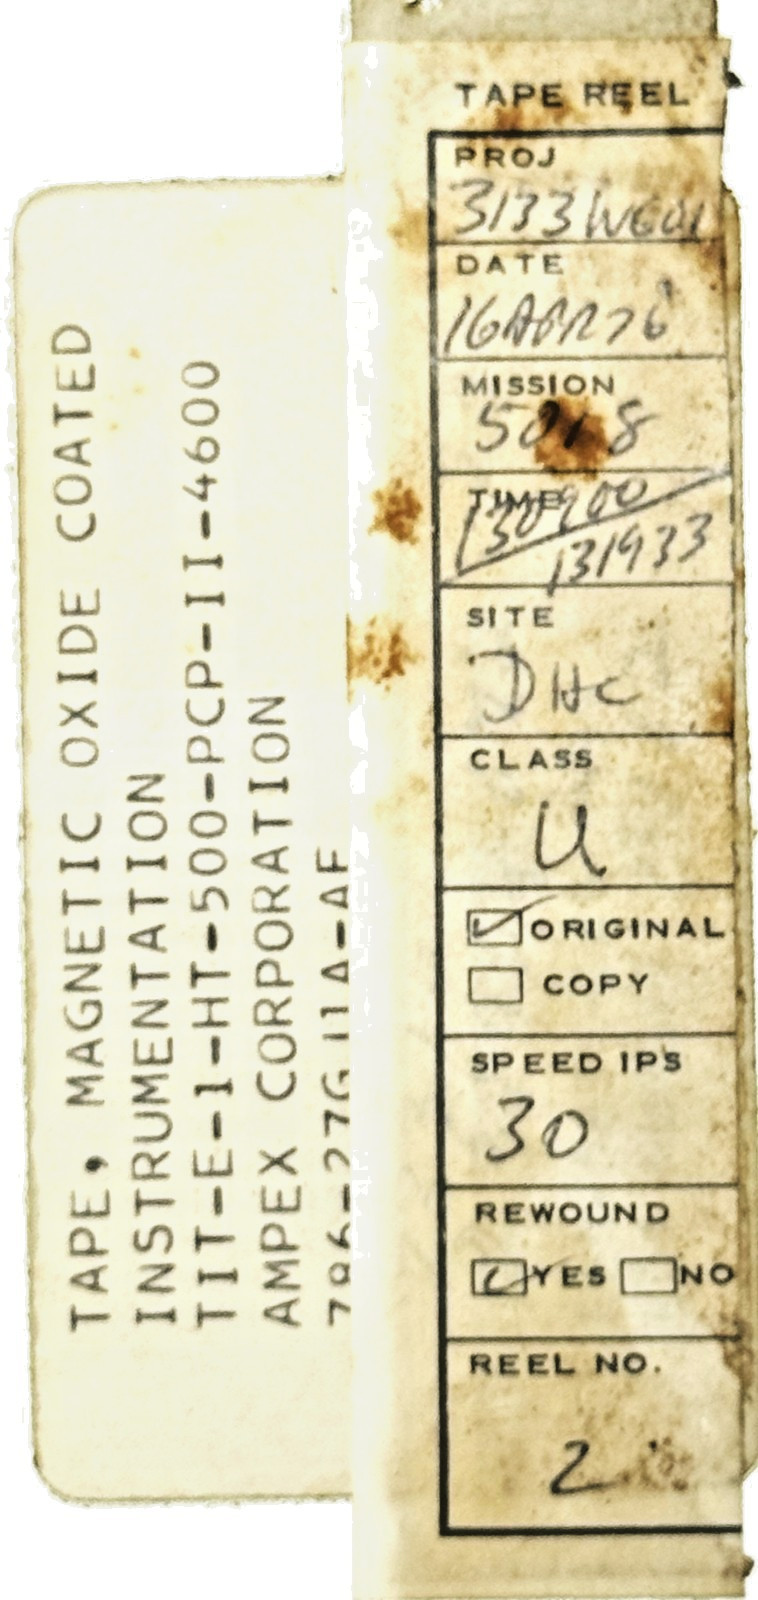 TAPE, MAGNETIC OXIDE COATED
INSTRUMENTATION
TIT-E-1-HT-500-PCP-II-4600
AMPEX CORPORATION
TAPE REEL
PROJ
3133 W601
DATE
16 APR 76
MISSION
TIME
130900
131933
SITE
DHC
CLASS
U
ORIGINAL
COPY
SPEED IPS
30
REWOUND
YES NO
REEL NO.
2